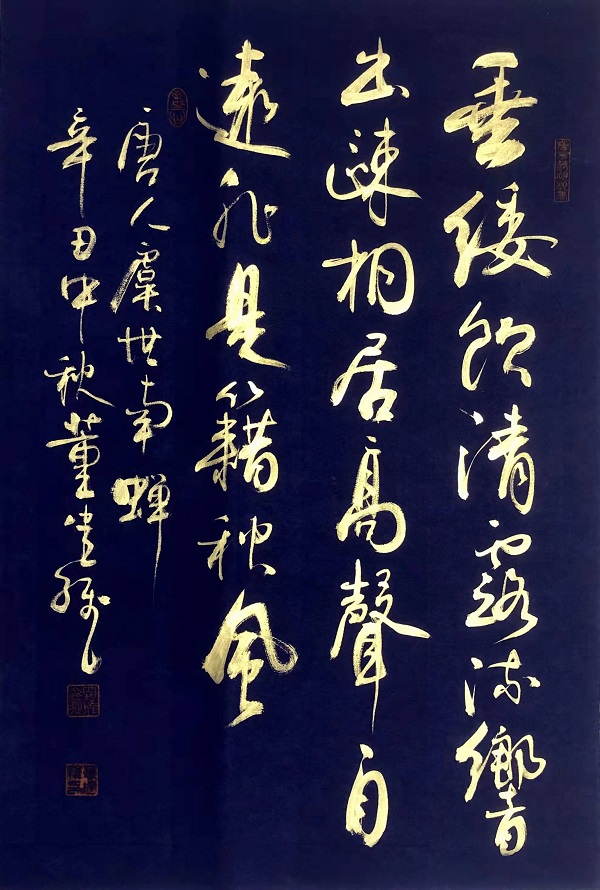 垂緌飲清露流響
出疎桐居高聲自
遠非是籍秋風
唐人虞世南蝉
辛丑中秋董